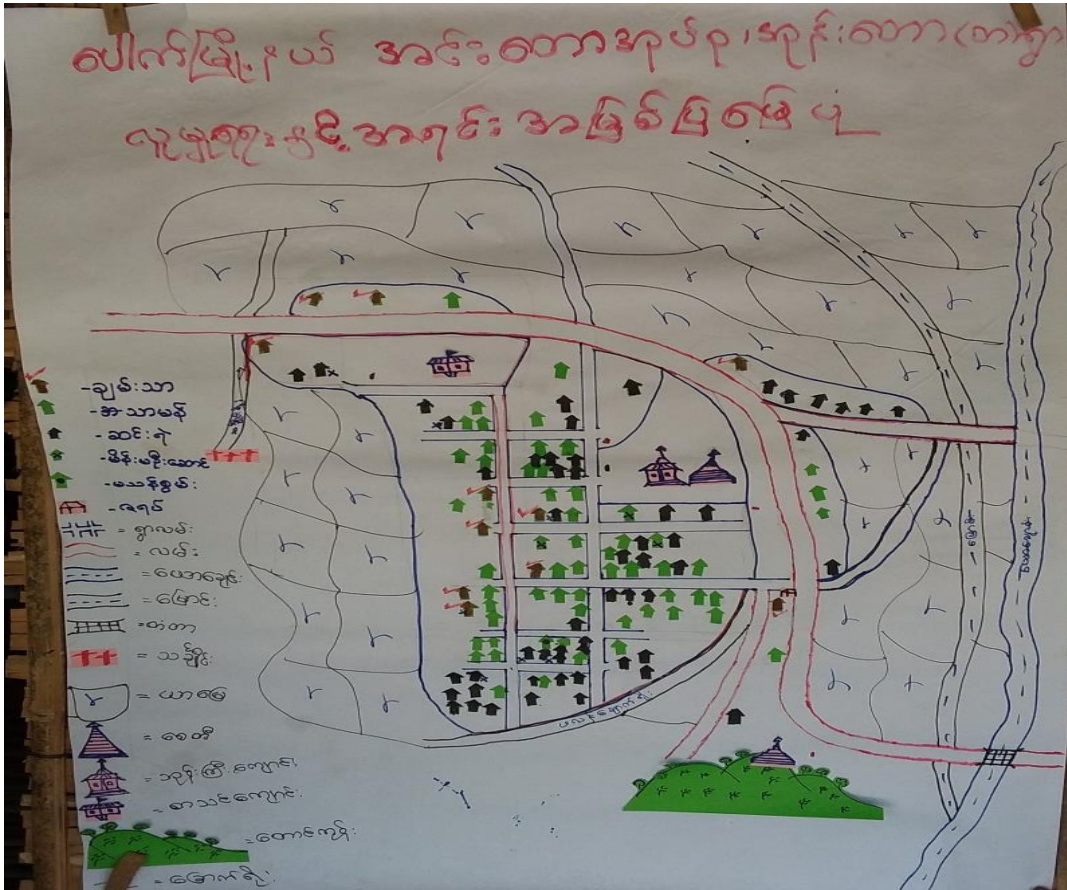 ပေါက်မြို့နယ် အင်းတောအုပ်စု၊အုန်းတော(တ)ရွာ
လူမှုရေးနှင့်အရင်းအမြစ်ပြမြေပုံ
-ချမ်းသာ
-အသာမန်
-ဆင်းရဲ
-မိန်းမဦးဆောင်
-မသန်စွမ်း
-ဇရပ်
= ရွာလမ်း
= လမ်း
=ယောချောင်း
=မြောင်း
=တံတာ
= သချိုင်း
= ယာမြေ
= စေတီ
= ဘုန်းကြီးကျောင်း
= စာသင်ကျောင်း
=တောင်ကုန်း
= မြောက်ရိုး